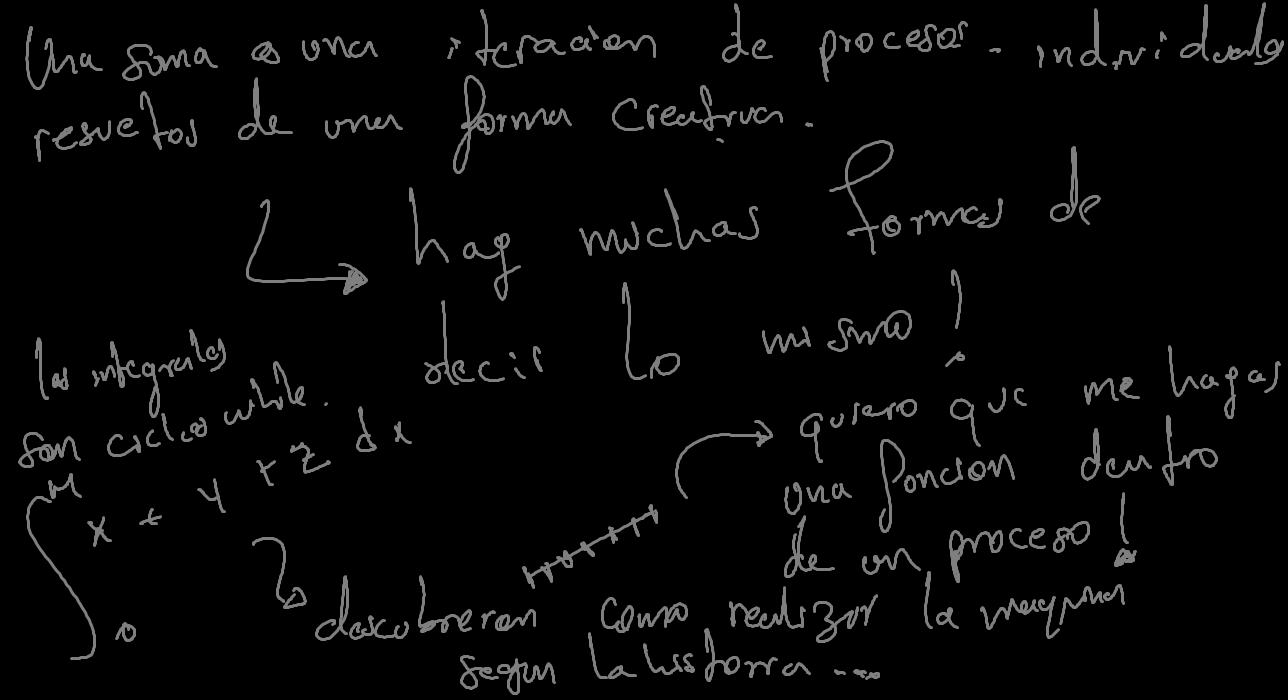 Una suma es una iteracion de procesos. individuales
resueltos de una forma creativa.
hay muchas formas de
decir lo mismo!
las integrales
son ciclos while.
∫₀ᴹ x + y + z dx
quiero que me hagas
una funcion dentro
de un proceso!
descubrieron como realizar la maquina
segun la historia ...